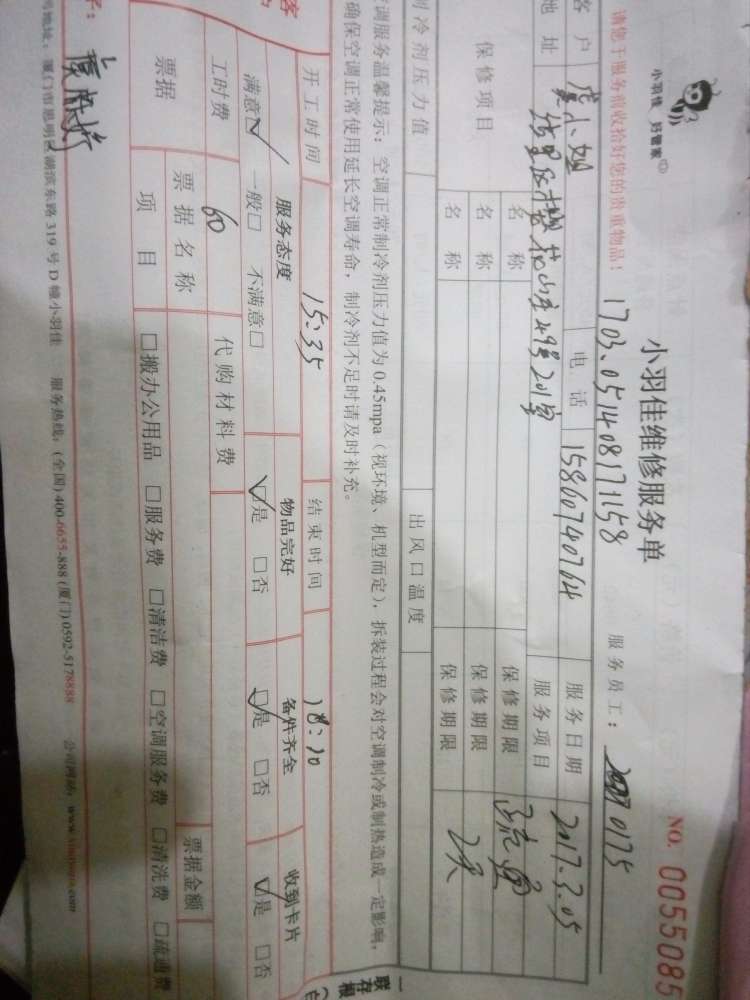 小羽佳 好管家
小羽佳维修服务单
NO. 0055085
请您于服务前收拾好您的贵重物品!
1703.051408171158
服务员工:
0175
客户
小姐
电话
15860740764
服务日期
2017.3.05
地址
49号201室
服务项目
保修项目
名称
保修期限
名称
保修期限
名称
保修期限
制冷剂压力值
出风口温度
调服务温馨提示: 空调正常制冷剂压力值为 0.45mpa (视环境、机型而定), 拆装过程会对空调制冷或制热造成一定影响,
确保空调正常使用延长空调寿命, 制冷剂不足时请及时补充。
开工时间
15:35
结束时间
服务态度
物品完好
备件齐全
收到卡片
满意☑ 一般□ 不满意□
☑是 □否
☑是 □否
☑是 □否
工时费
60
代购材料费
票据
票据名称
票据金额
项目
□搬办公用品 □服务费 □清洁费 □空调服务费 □清洗费 □疏通费
地址: 厦门市思明区湖滨东路 319 号 D 幢小羽佳 服务热线: (全国) 400-6655-888 (厦门) 0592-5178888 公司网站:
一联存根